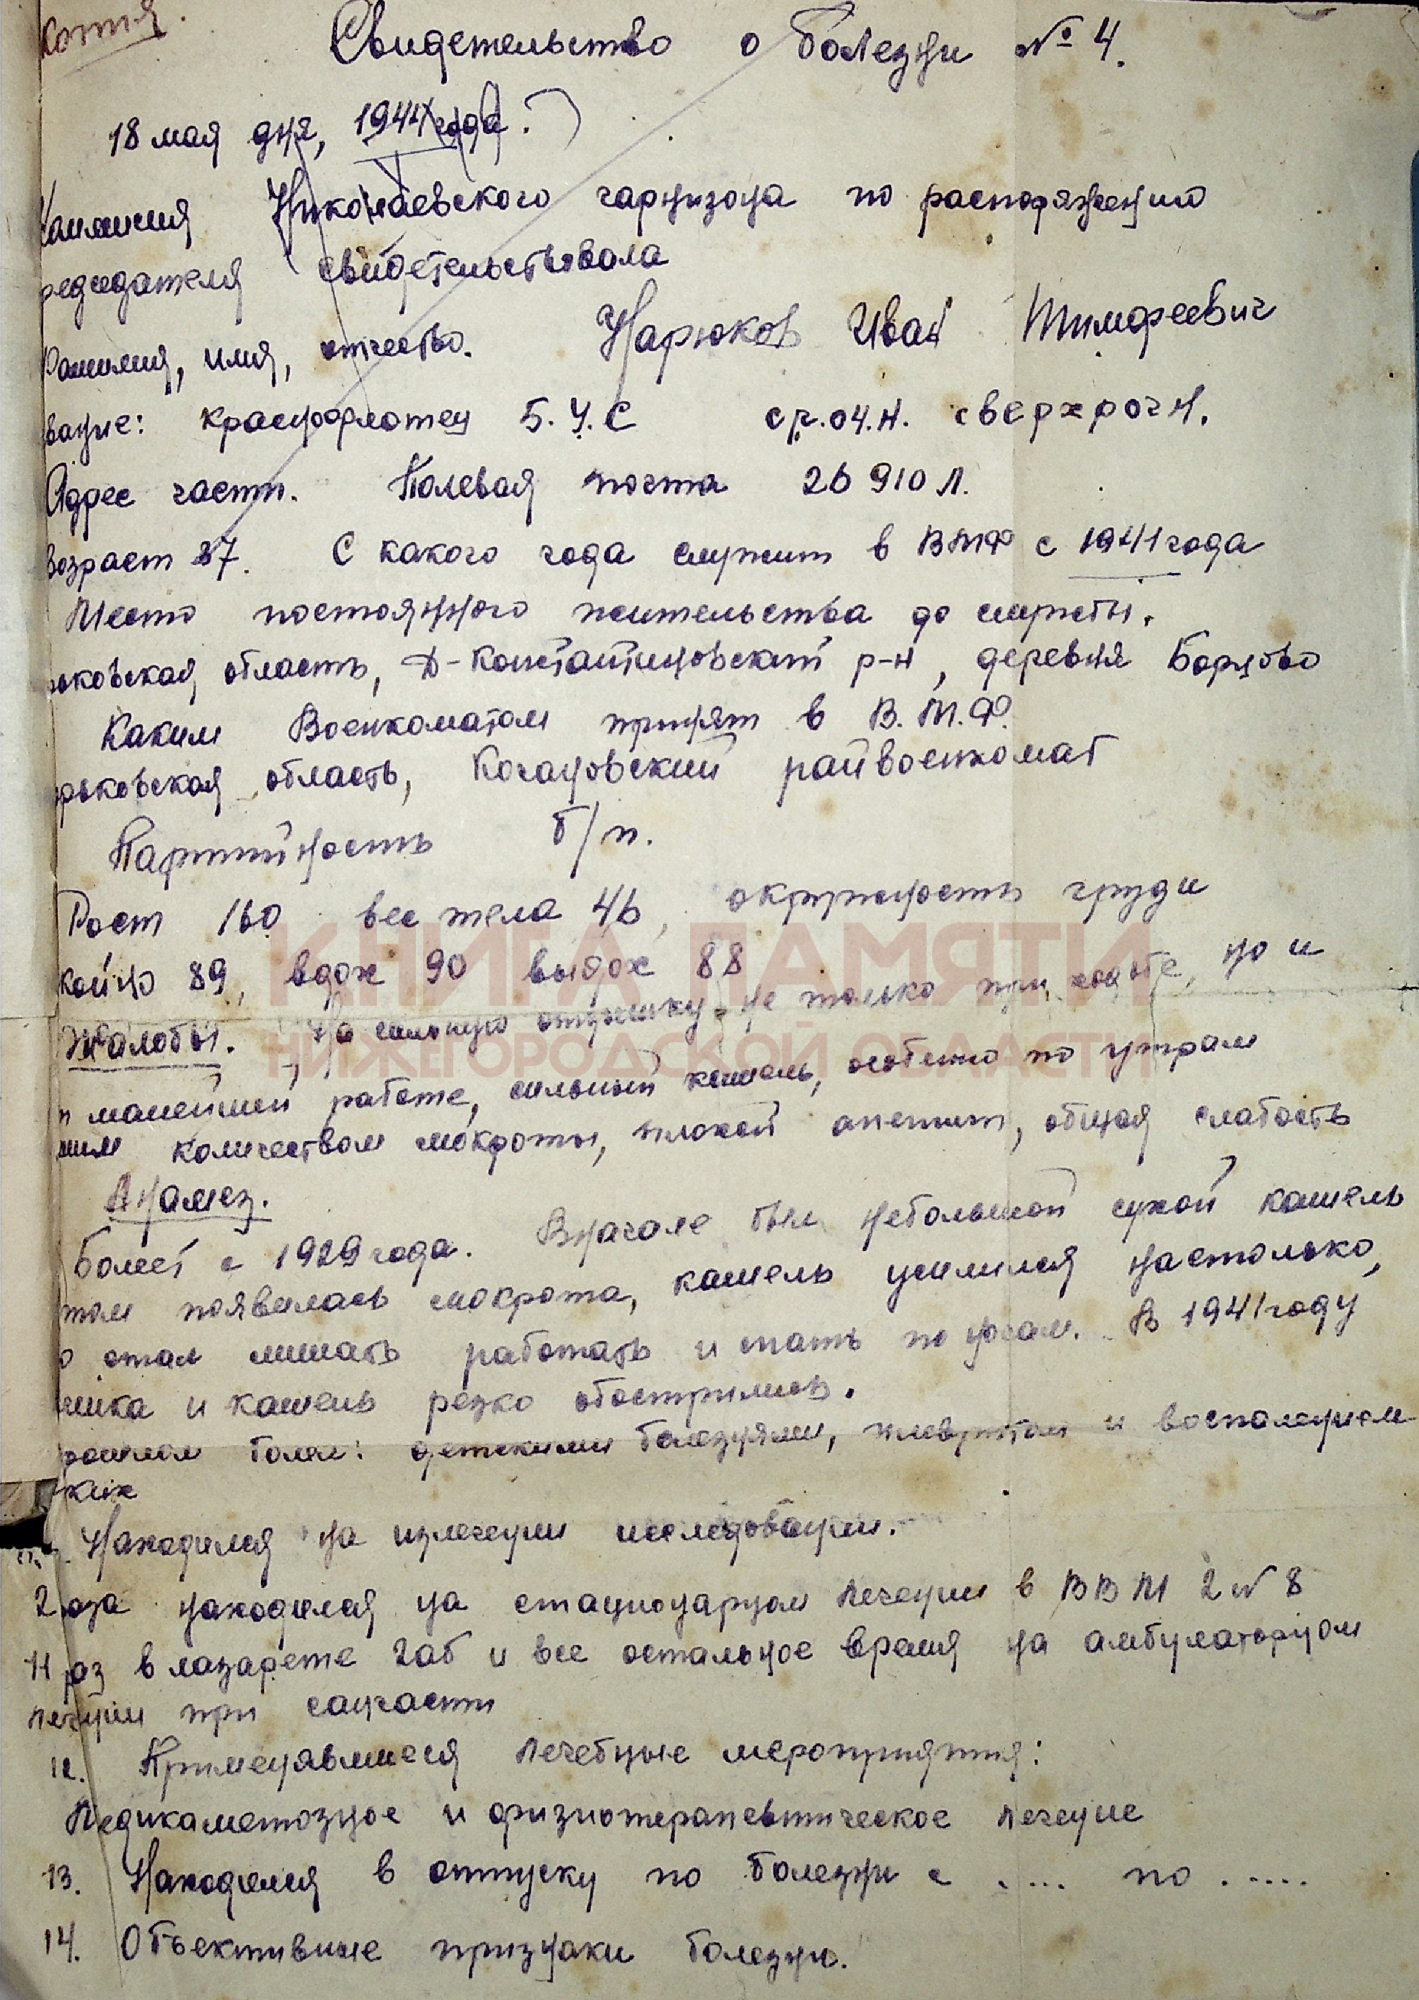 Копия.
Свидетельство о болезни № 4.
18 мая дня, 1944 года.
Комиссия Николаевского гарнизона по распоряжению
редседателя свидетельствовала
Фамилия, имя, отчество. Нарюков Иван Тимофеевич
вание: краснофлотец Б.У.С ст.оч.н. сверхрочн.
Адрес части. Полевая почта 26910 Л.
Возраст 37. С какого года служит в ВМФ с 1941 года
Место постоянного жительства до службы.
рьковская область, Д-Константиновский р-н, деревня Борцово
Каким Военкоматом принят в В.М.Ф.
орьковская область, Кагановский райвоенкомат
Партийность б/п.
Рост 160 вес тела 46, окружность груди
койно 89, вдох 90 выдох 88
Жалобы. На сильную отдышку не только при ходьбе, но и
и малейшей работе, сильный кашель, особенно по утрам
шим количеством мокроты, плохой апетит, общая слабость
Анамез.
Болеет с 1929 года. Вначале был небольшой сухой кашель
том появилась мокрота, кашель усилился настолько,
о стал мешать работать и спать по ночам. В 1941 году
ышка и кашель резко обострились.
рошлом болел: детскими болезнями, плевритом и воспалением
гких
Находился на излечении исследовании.
2 раза находился на стационарном лечении в ВВМ 2 № 8
раз в лазарете ЧАБ и все остальное время на амбулаторном
лечении при санчасти
12. Применявшиеся лечебные мероприятия:
Медикаметозное и физиотерапевтическое лечение
13. Находился в отпуску по болезни с .... по .....
14. Объективные признаки болезни.
КНИГА ПАМЯТИ
НИЖЕГОРОДСКОЙ ОБЛАСТИ